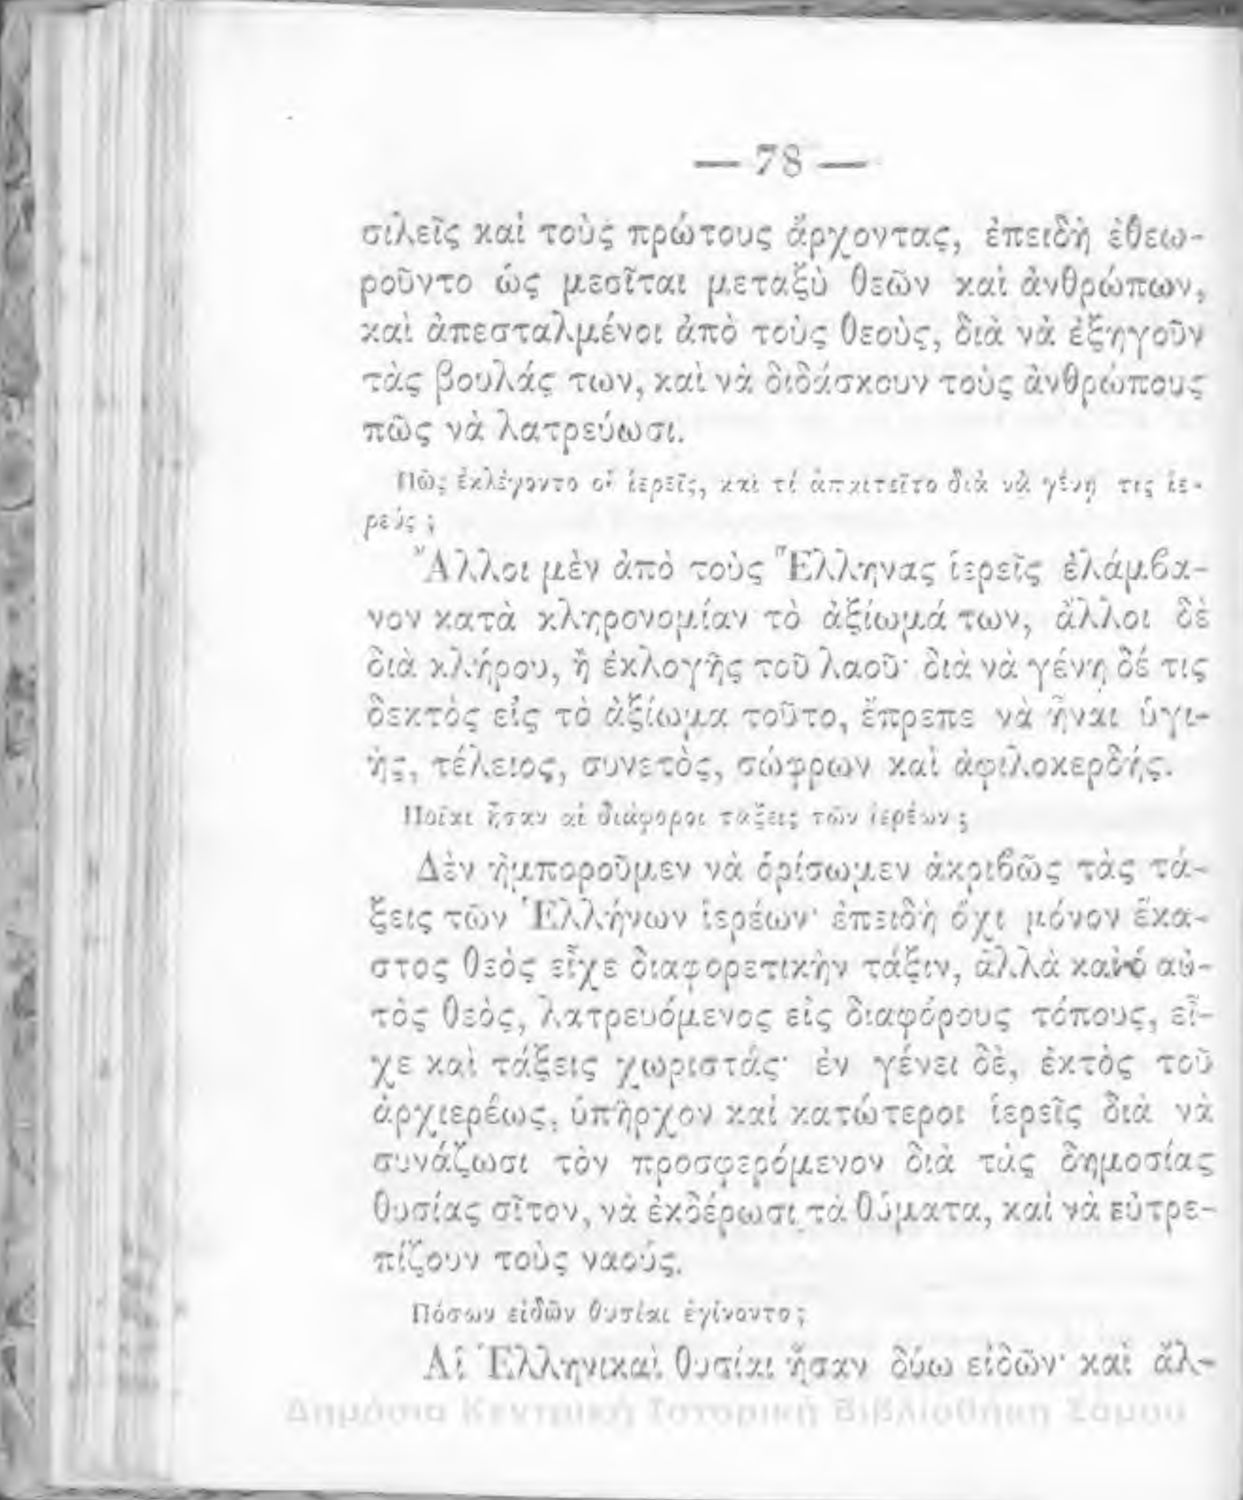 — 78 —
σιλεῖς καὶ τοὺς πρώτους ἄρχοντας, ἐπειδὴ ἐθεω-
ροῦντο ὡς μεσῖται μεταξὺ θεῶν καὶ ἀνθρώπων,
καὶ ἀπεσταλμένοι ἀπὸ τοὺς θεοὺς, διὰ νὰ ἐξηγοῦν
τὰς βουλάς των, καὶ νὰ διδάσκουν τοὺς ἀνθρώπους
πῶς νὰ λατρεύωσι.
Πῶς ἐκλέγοντο οἱ ἱερεῖς, καὶ τί ἀπαιτεῖτο διὰ νὰ γένῃ τις ἱε-
ρεύς ;
Ἄλλοι μὲν ἀπὸ τοὺς Ἕλληνας ἱερεῖς ἐλάμβα-
νον κατὰ κληρονομίαν τὸ ἀξίωμά των, ἄλλοι δὲ
διὰ κλήρου, ἢ ἐκλογῆς τοῦ λαοῦ· διὰ νὰ γένῃ δέ τις
δεκτὸς εἰς τὸ ἀξίωμα τοῦτο, ἔπρεπε νὰ ἦναι ὑγι-
ὴς, τέλειος, συνετὸς, σώφρων καὶ ἀφιλοκερδής.
Ποῖαι ἦσαν αἱ διάφοροι τάξεις τῶν ἱερέων ;
Δὲν ἠμποροῦμεν νὰ ὁρίσωμεν ἀκριβῶς τὰς τά-
ξεις τῶν Ἑλλήνων ἱερέων· ἐπειδὴ ὄχι μόνον ἕκα-
στος θεὸς εἶχε διαφορετικὴν τάξιν, ἀλλὰ καὶ ὁ αὐ-
τὸς θεὸς, λατρευόμενος εἰς διαφόρους τόπους, εἶ-
χε καὶ τάξεις χωριστάς· ἐν γένει δὲ, ἐκτὸς τοῦ
ἀρχιερέως, ὑπῆρχον καὶ κατώτεροι ἱερεῖς διὰ νὰ
συνάζωσι τὸν προσφερόμενον διὰ τὰς δημοσίας
θυσίας σῖτον, νὰ ἐκδέρωσι τὰ θύματα, καὶ νὰ εὐτρε-
πίζουν τοὺς ναούς.
Πόσων εἰδῶν θυσίαι ἐγίνοντο ;
Αἱ Ἑλληνικαὶ θυσίαι ἦσαν δύω εἰδῶν· καὶ ἄλ-
Δημόσια Κεντρική Ιστορική Βιβλιοθήκη Σάμου